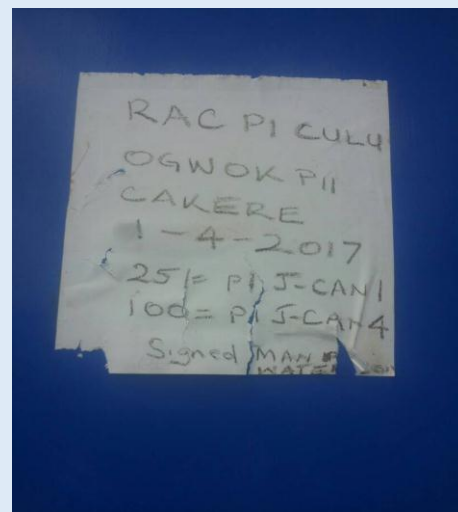 RAC PI CULU
OGWOK PII
CAKERE
1-4-2017
25/= PI J-CAN 1
100= PI J-CAN 4
Signed MAN
WATE